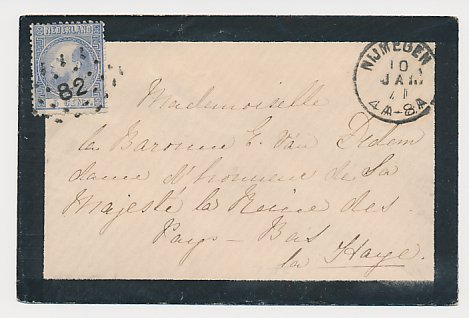 NEDERLAND
82
NIJMEGEN
10
JAN
71
4A-8A
Mademoiselle
la Baronne E. Van Dedem
dame d'honneur de Sa
Majesté la Reine des
Pays-Bas
La Haye.